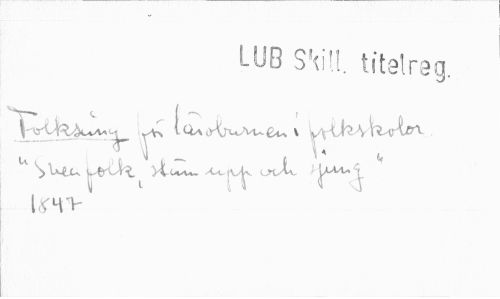 LUB Skill. titelreg.
Folksång för lärobarnen i folkskolor.
"Svea folk, stäm upp och sjung"
1847